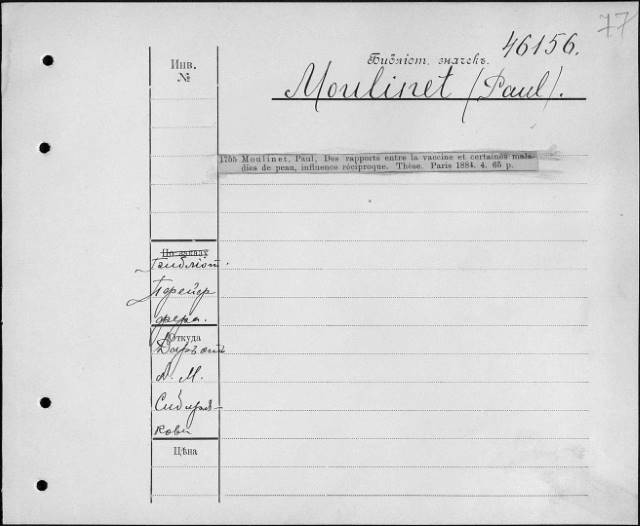 77
46156.
Инв.
№
Библіот. значекъ.
Moulinet (Paul).
1755 Moulinet, Paul, Des rapports entre la vaccine et certaines mala-
dies de peau, influence réciproque. Thèse. Paris 1884. 4. 65 p.
По заказу
библіот.
Пфейфе
фера.
Откуда
Даръ отъ
А. М.
Сибиря-
кова
Цѣна